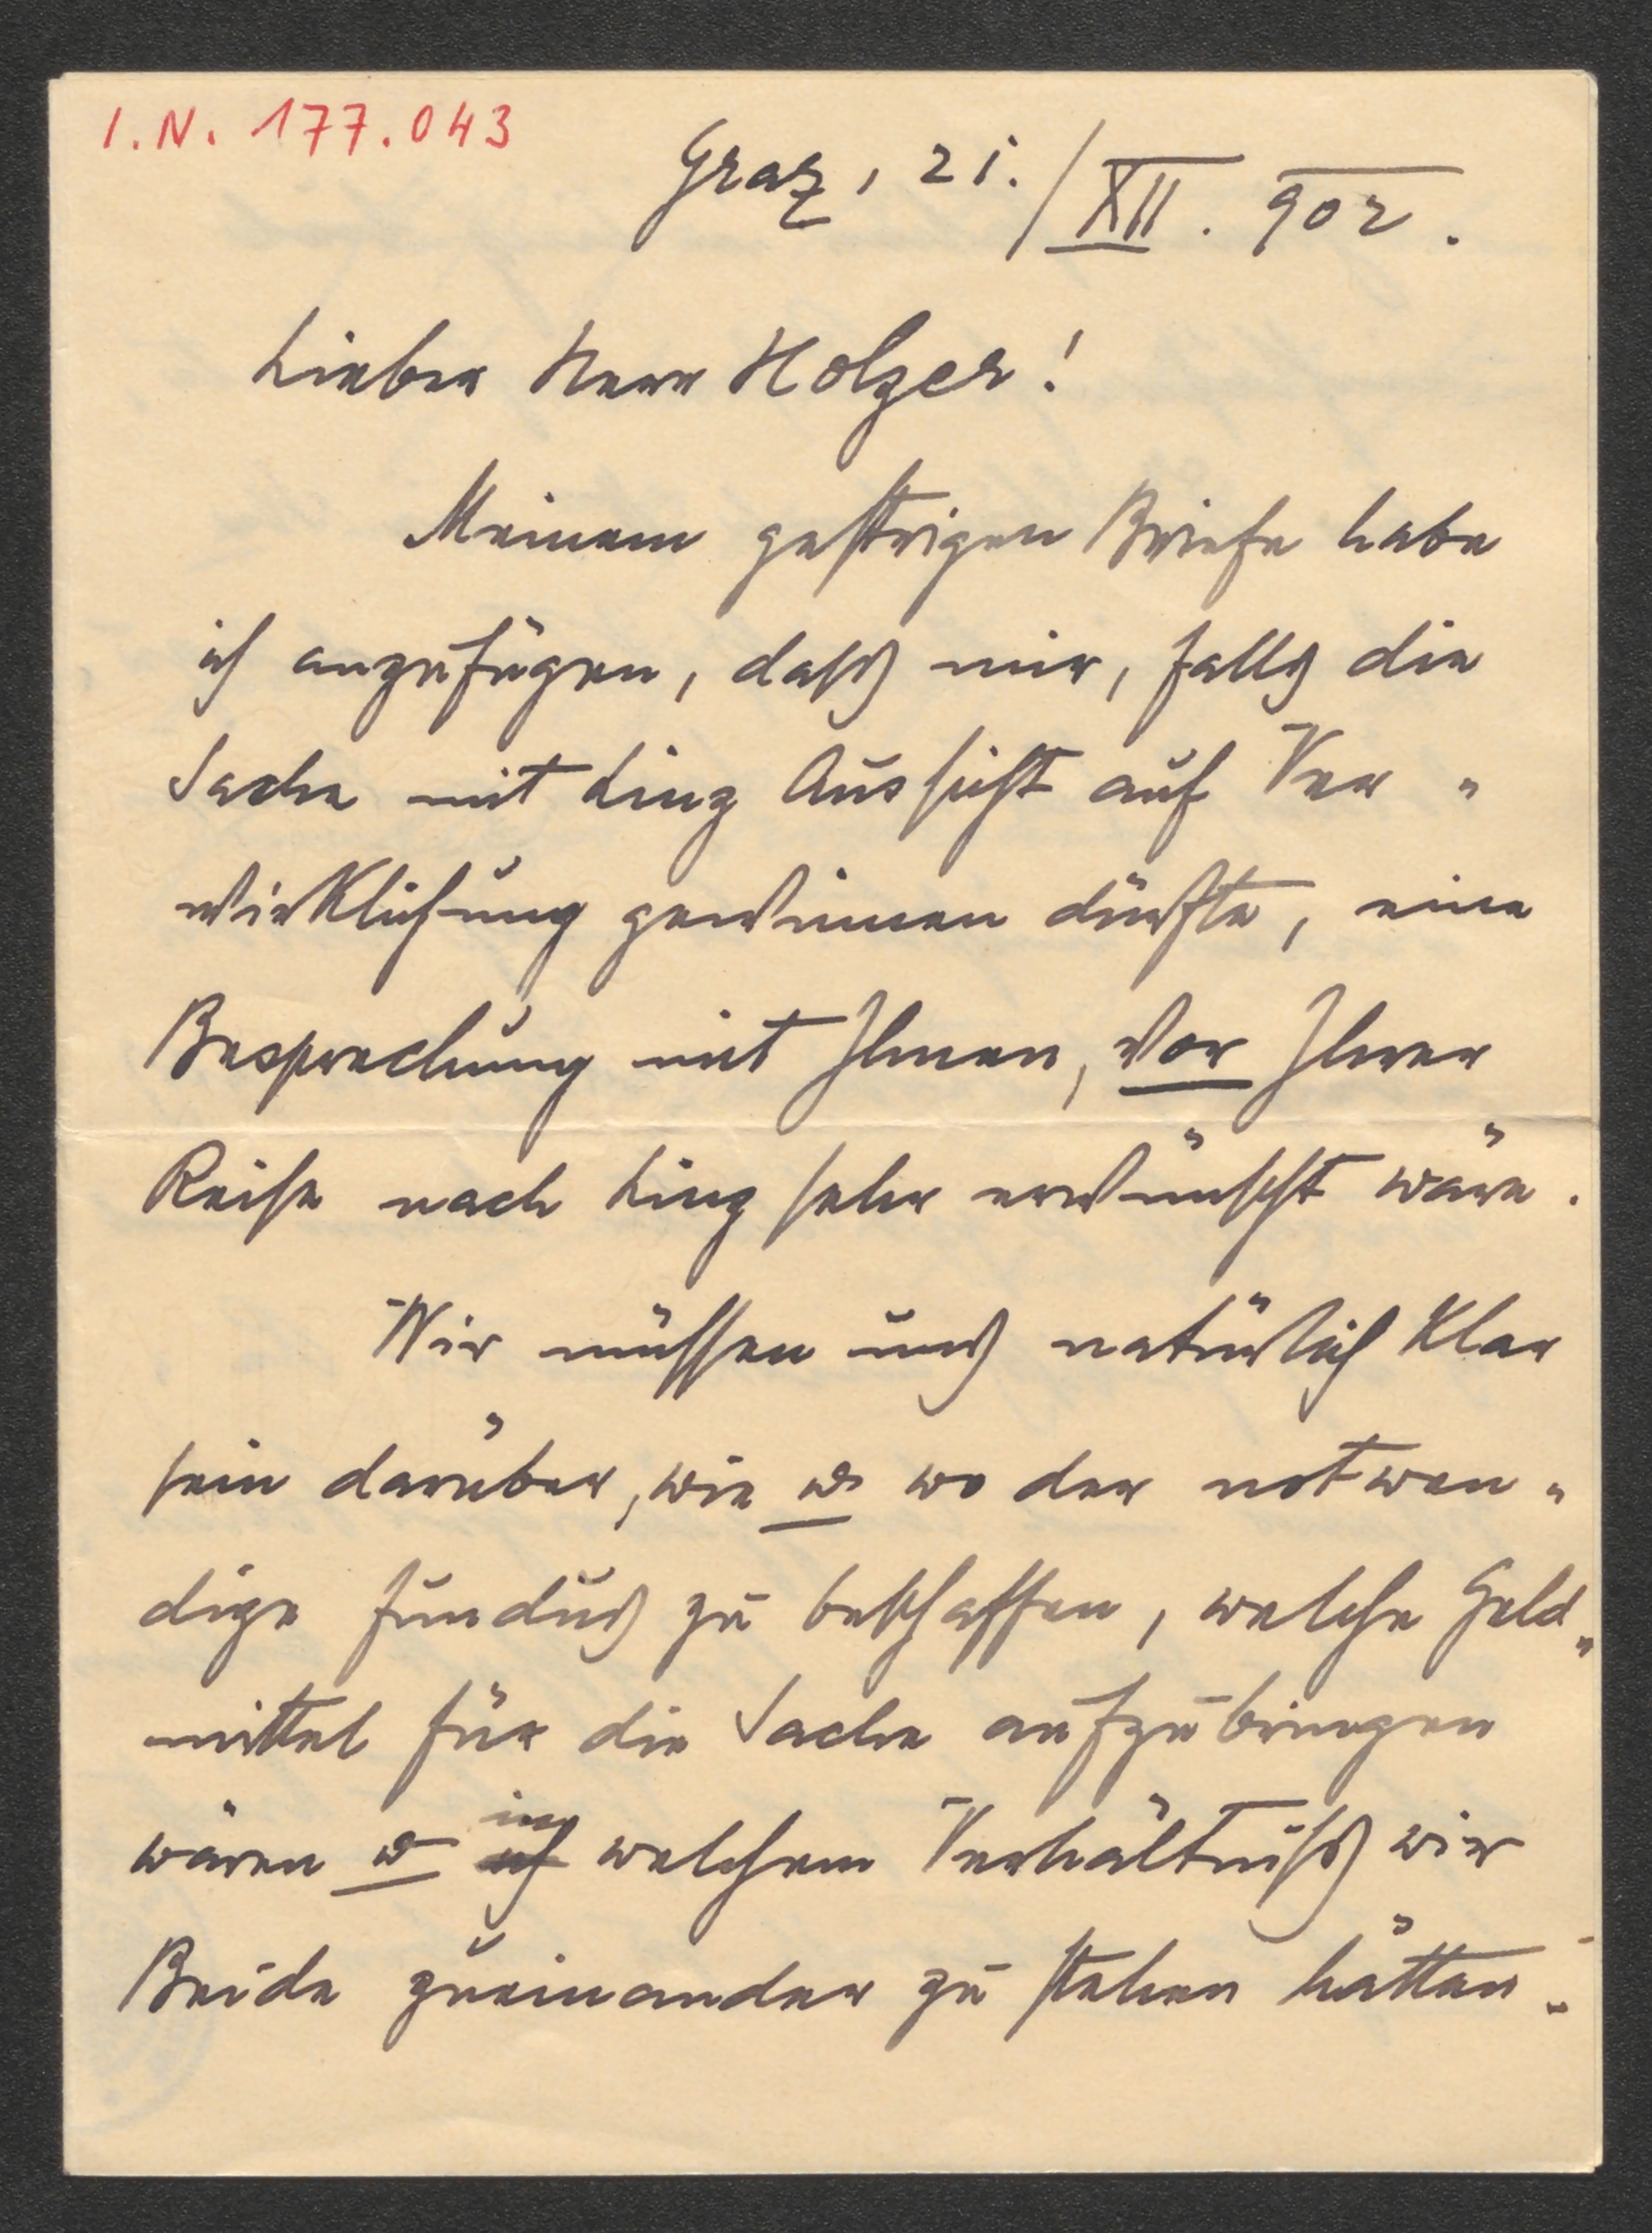 I.N. 177.043
Graz, 21./XII. 902.
Lieber Herr Holzer!
Meinem gestrigen Briefe habe
ich anzufügen, daß mir, falls die
Sache mit Linz Aussicht auf Ver„
wirklichung gewinnen dürfte, eine
Besprechung mit Ihnen, vor Ihrer
Reise nach Linz sehr erwünscht wäre.
Wir müssen uns natürlich klar
sein darüber, wie u wo der notwen„
dige Fundus zu beschaffen, welche Geld„
mittel für die Sache aufzubringen
wären u in welchem Verhältniß wir
Beide zueinander zu stehen hätten.